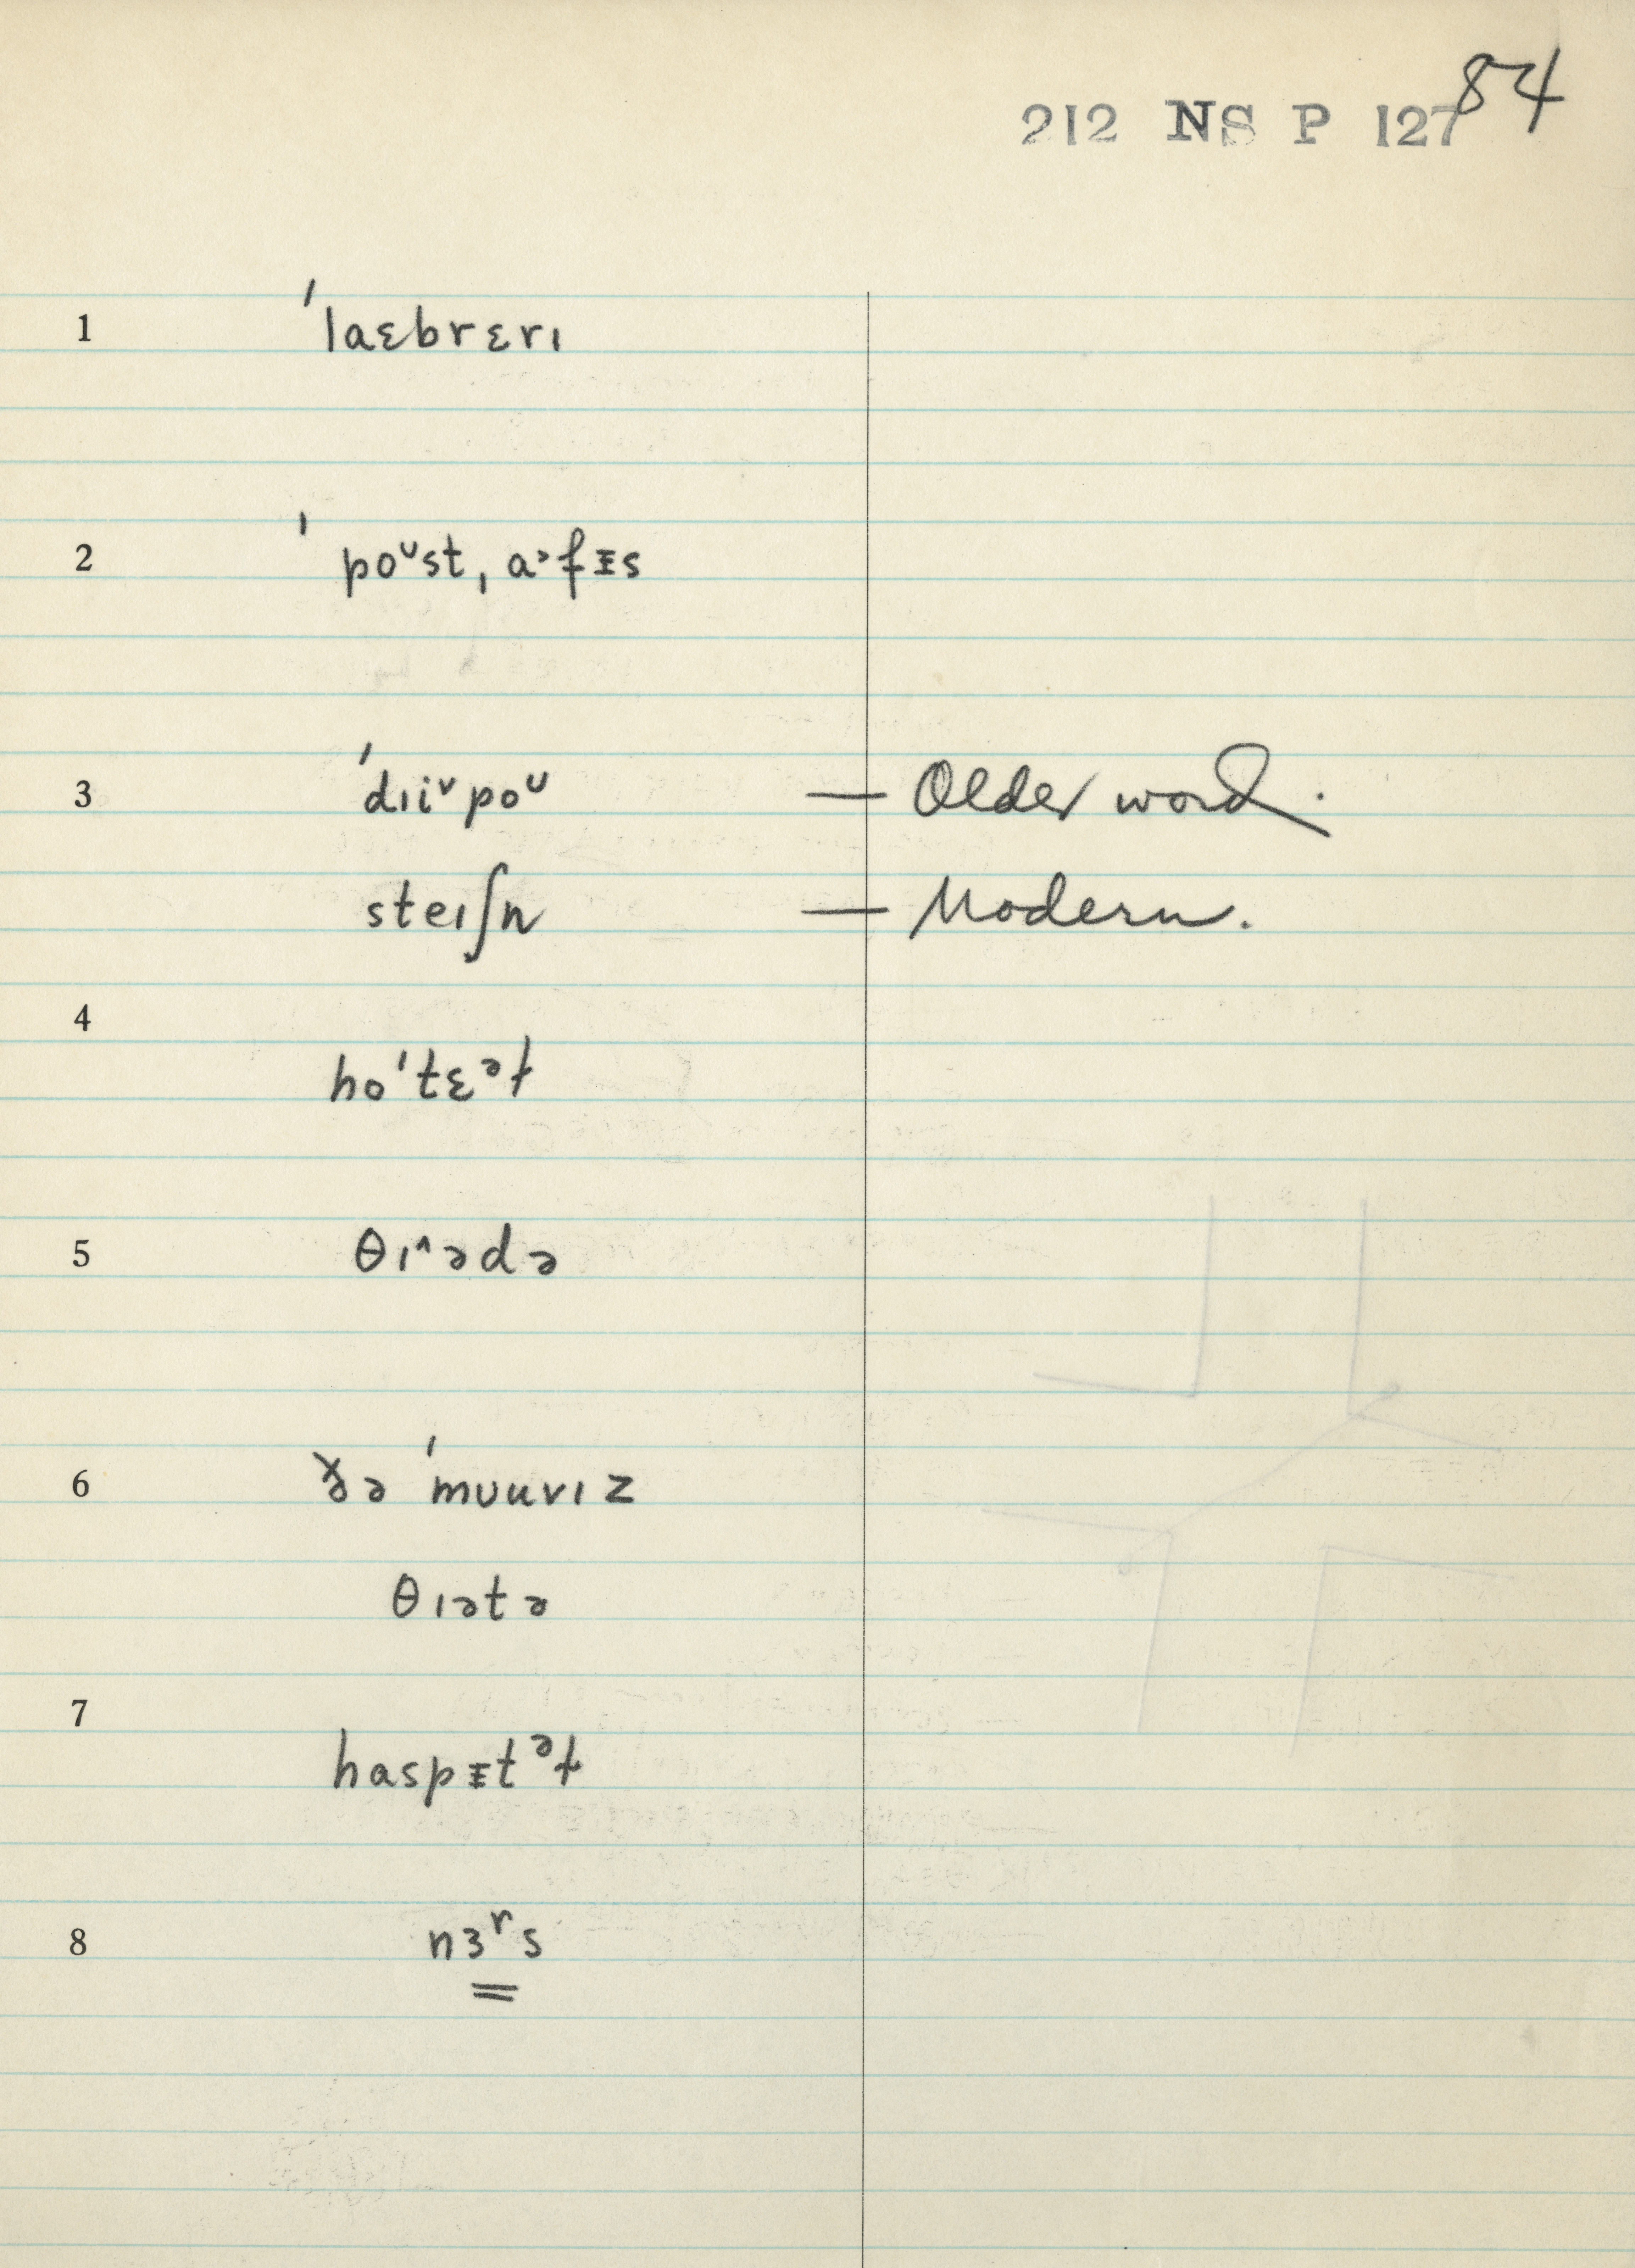 84
212 NS P 127
1 ˈlaɛbrɛrɪ
2 ˈpoᶷst, a˃fᵻs
3 ˈdɪi˅poᶷ — Older word.
steɪʃn — Modern.
4
hoˈtɛᵊɫ
5 θɪ˄ədə
6 ðə ˈmʊuvɪz
θɪətə
7
haspᵻtᵊɫ
8 nɜʳs